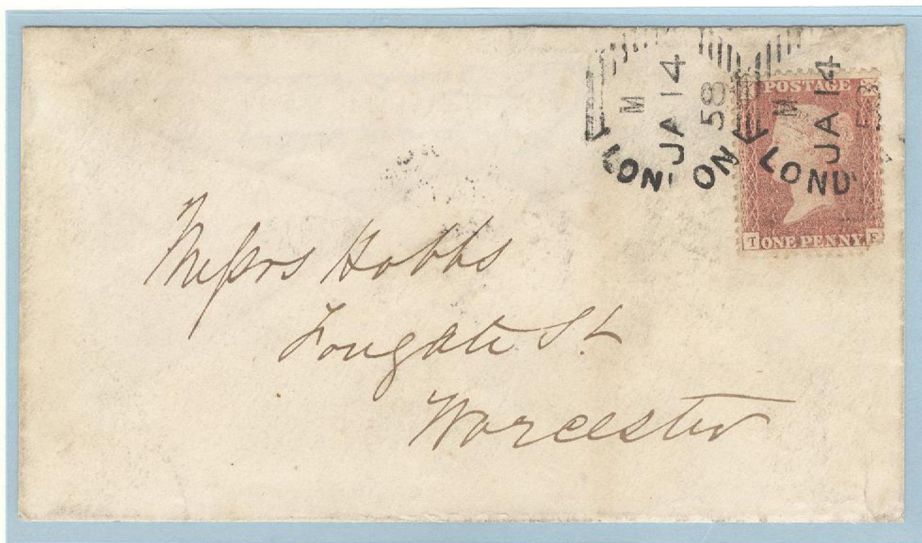 M
JA 14
58
LONDON
M
JA 14
58
LOND
POSTAGE
T ONE PENNY F
Messrs Hobbs
Forgate St
Worcester